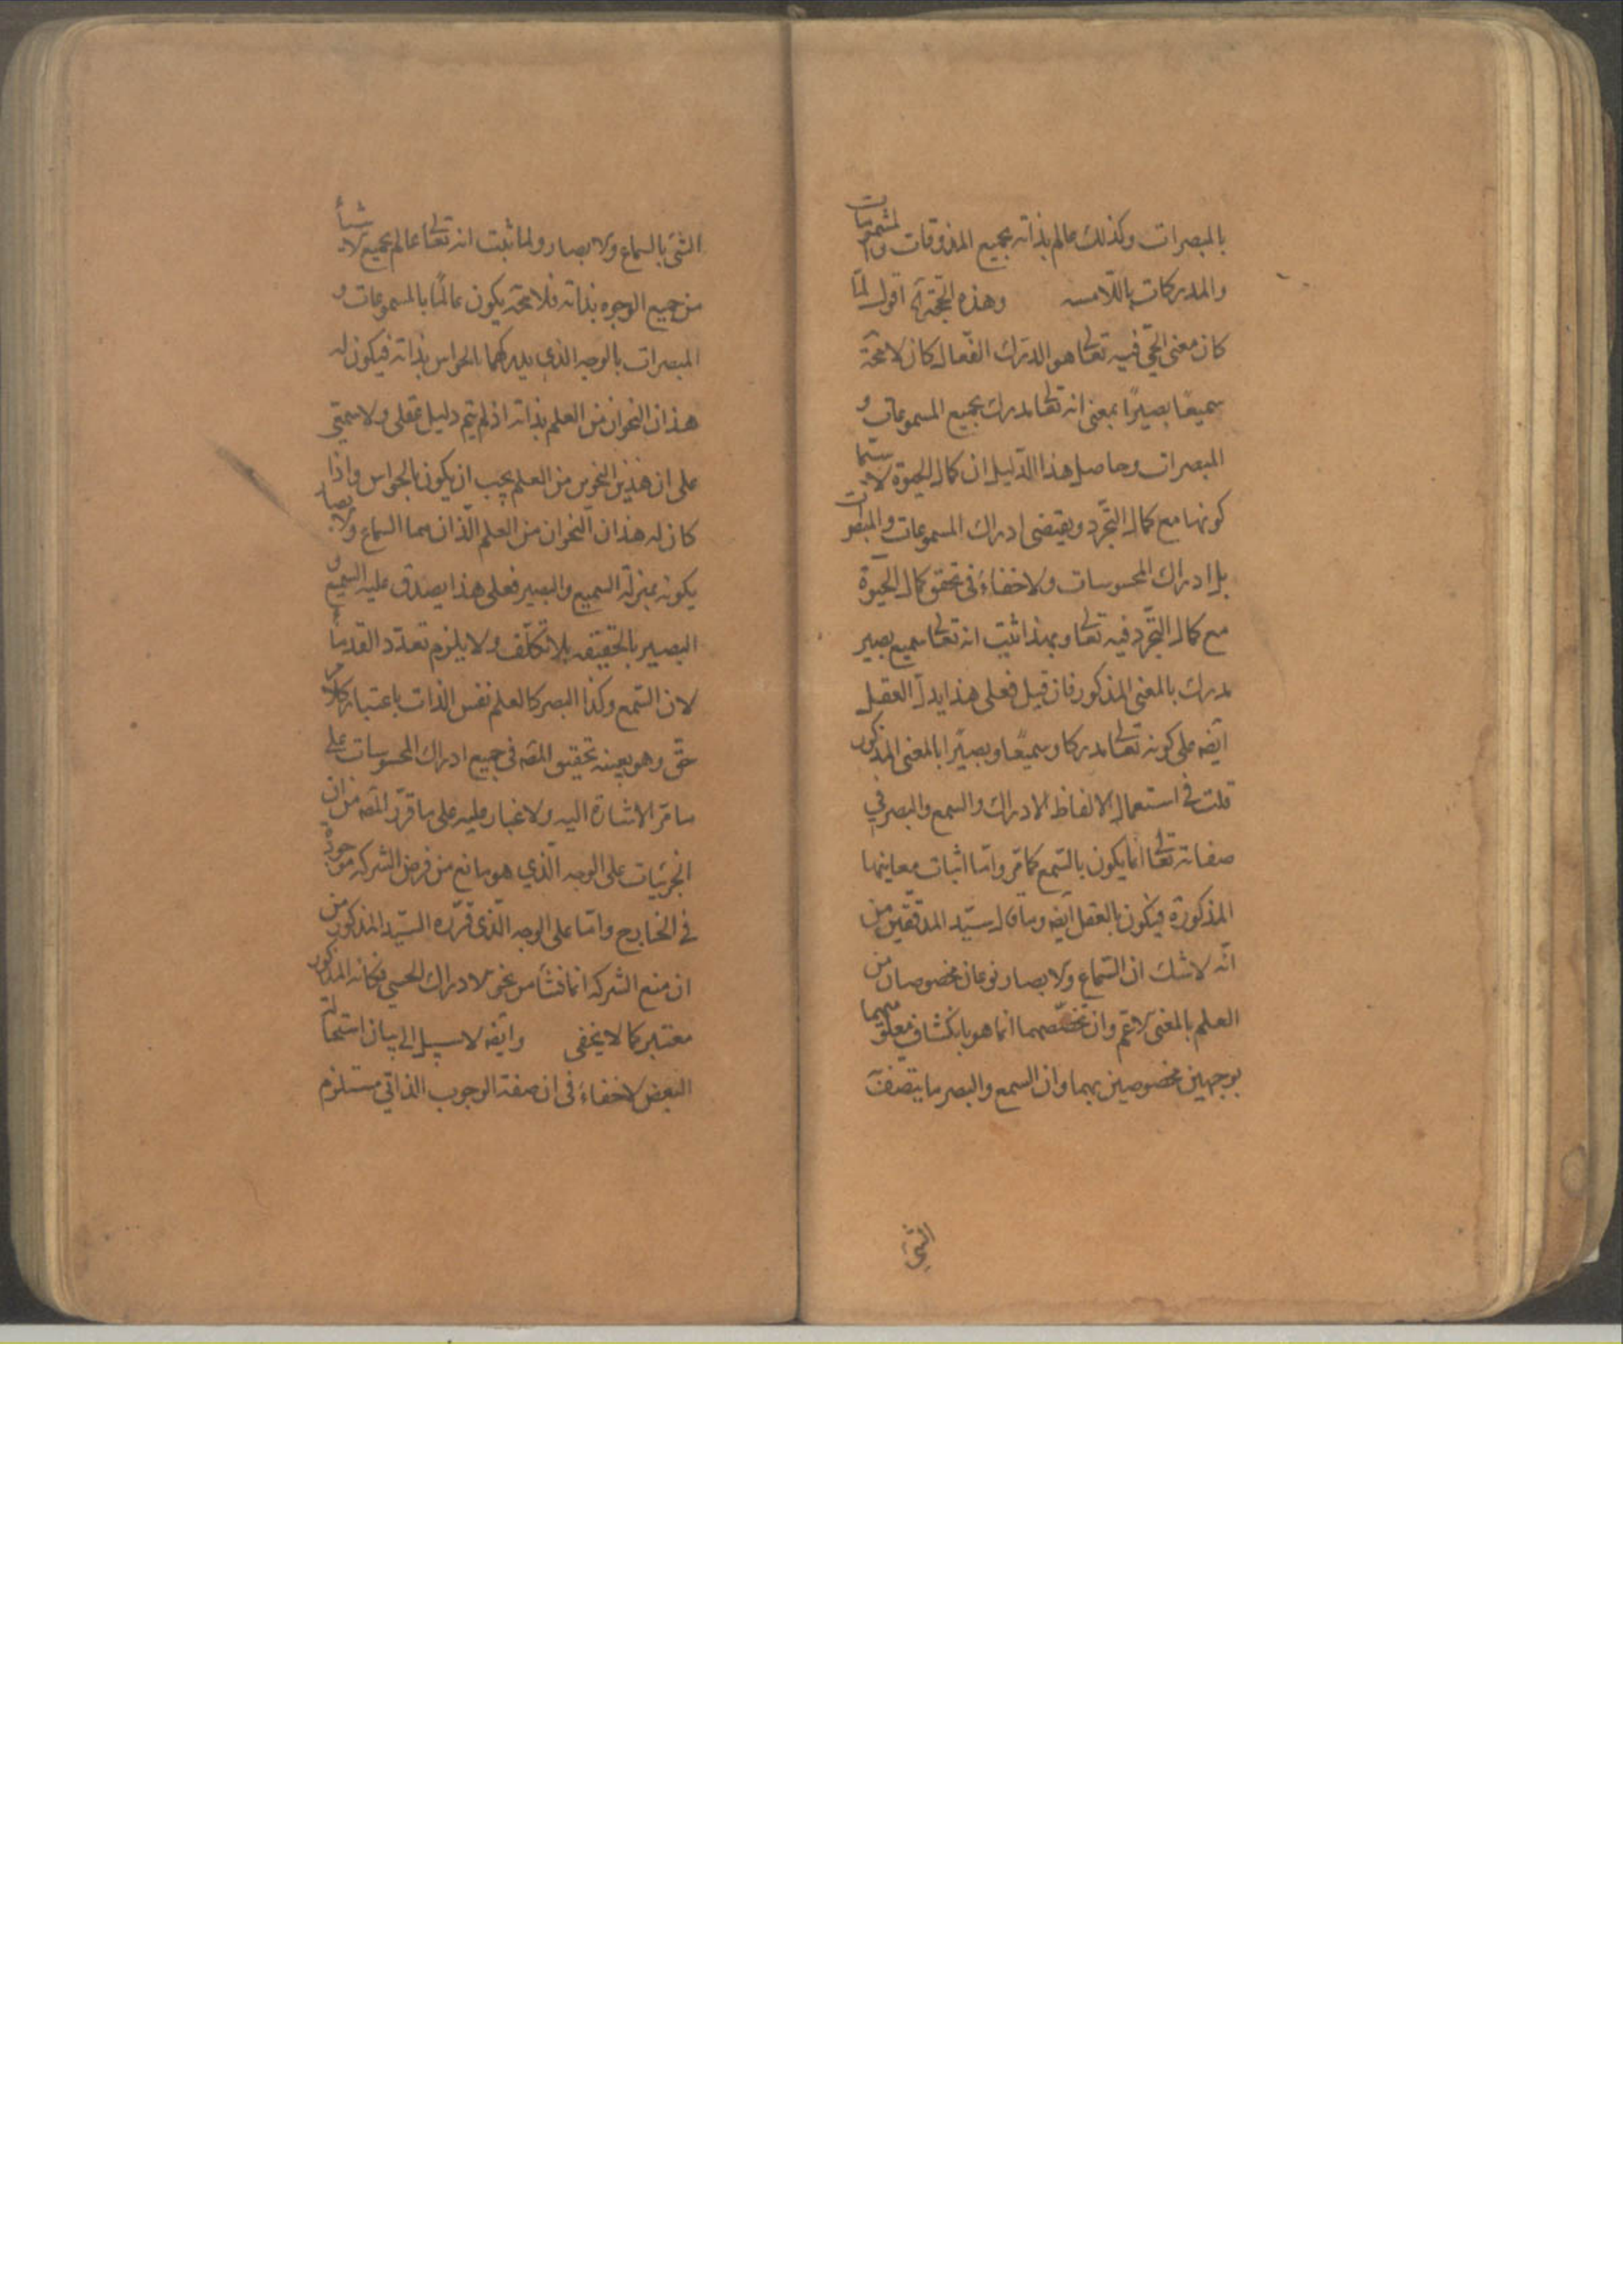 بالمبصرات وكذلك عالم بذاته بجميع المذوقات والمشمومات
والمدركات باللامسه وهذه الحجة آه اقول لما
كان معنى الحي فيه تعالى هو الدراك الفعال كان لامحة
سميعًا بصيرًا بمعنى انه تعالى مدرك بجميع المسموعات و
المبصرات وحاصل هذا الدليل ان كمال الحيوة لاسيما
كونها مع كمال التجرد ويقتضي ادراك المسموعات والمبصرات
بل ادراك المحسوسات ولاخفاء في تحقق كمال الحيوة
مع كمال التجرد فيه تعالى وبهذا ثبت انه تعالى سميع بصير
مدرك بالمعنى المذكور فان قيل فعلى هذا يدل العقل
ايضه على كونه تعالى مدركا وسميعًا وبصيرًا بالمعنى المذكور
قلت في استعمال الالفاظ الادراك والسمع والبصر في
صفاته تعالى انما يكون بالسمع كما مر واما اثبات معانيها
المذكورة فيكون بالعقل ايضه وما قال سيد المدققين من
انه لاشك ان السماع والابصار نوعان مخصوصان من
العلم بالمعنى الاعم وان تخصصهما انما هو بانكشاف متعلقهما
بوجهين مخصوصين بهما وان السمع والبصر ما يتصف
الشئ
الشئ بالسماع والابصار ولما ثبت انه تعالى عالم بجميع الاشيأ
من جميع الوجوه بذاته فلامحة يكون عالمًا بالمسموعات و
المبصرات بالوجه الذي يدركهما الحواس بذاته فيكون له
هذان النحوان من العلم بذاته اذ لم يتم دليل عقلي ولا سمعي
على ان هذين النحوين من العلم يجب ان يكون بالحواس واذا
كان له هذان النحوان من العلم الذان هما السماع والابصار
يكون بمنزلة السميع والبصير فعلى هذا يصدق عليه السميع و
البصير بالحقيقه بلا تكلف ولا يلزم تعدد القدمأ
لان السمع وكذا البصر كالعلم نفس الذات باعتبار كلام
حق وهو بعينه تحقيق المصه في جميع ادراك المحسوسات على
ما مر الاشارة اليه ولا غبار عليه على ما قرر المصه من ان
الجزئيات على الوجه الذي هو مانع من فرض الشركه موجودة
في الخارج واما على الوجه الذي قرره السيد المذكور من
ان منع الشركه انما نشأ من نحو الادراك الحسي فكانه المذكور
معتبر كما لا يخفى وايضه لا سبيل الى بيان استحالة
البعض لاخفاء في ان صفة الوجوب الذاتي مستلزم